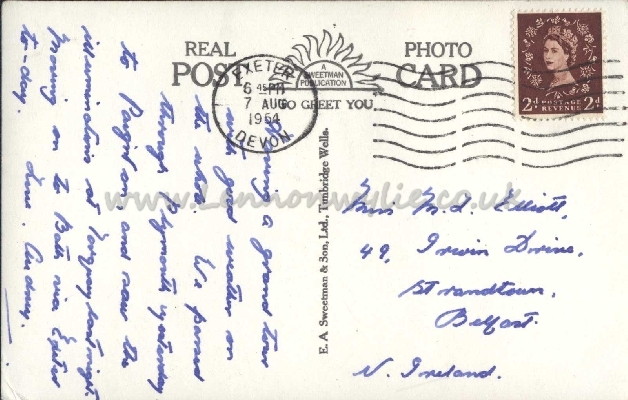 REAL PHOTO
POST CARD
A
SWEETMAN
PUBLICATION
TO GREET YOU
EXETER
6 45 PM
7 AUG
1954
DEVON
2D POSTAGE REVENUE 2D
Having a grand tour
with good weather on
the whole. We passed
through Plymouth yesterday
to Paignton, and saw the
illuminations at Torquay last night.
Moving on to Bath via Exeter
to-day. Love. Audrey.
E. A. Sweetman & Son, Ltd., Tunbridge Wells.
Miss M. L. Elliott,
49, Irwin Drive,
Strandtown,
Belfast.
N. Ireland.
www.Lennonwylie.co.uk